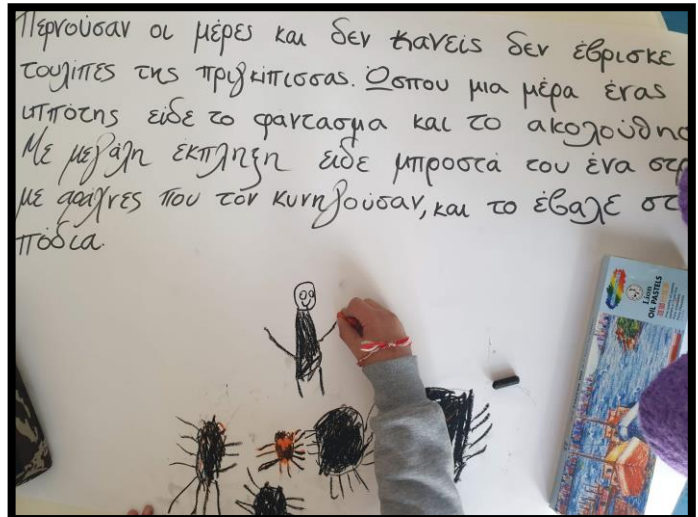 Περνούσαν οι μέρες και δεν κανείς δεν έβρισκε
τουλίπες της πριγκίπισσας. Ώσπου μια μέρα ένας
ιππότης είδε το φάντασμα και το ακολούθησ
Με μεγάλη έκπληξη είδε μπροστά του ένα στρ
με αράχνες που τον κυνηγούσαν, και το έβαλε στ
πόδια.
Lion
OIL PASTELS